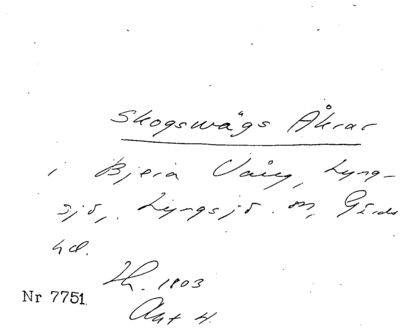 Skogswägs Åkrar
i Bjera Vång, Lyng-
sjö, Lyngsjö sn, Gärds
hd.
Zh. 1803
Nr 7751.
Akt 4.